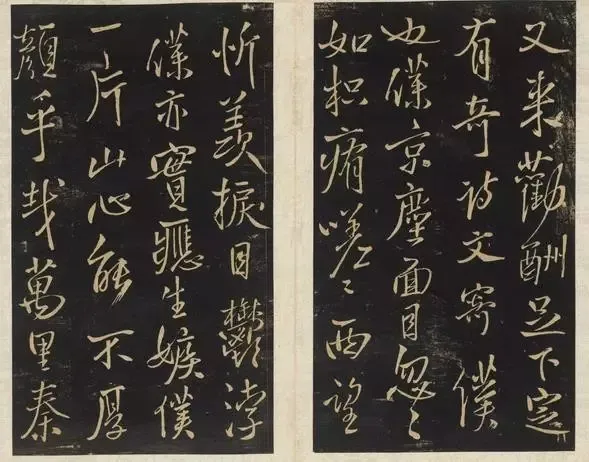 又来勸酬足下定
有奇詩文寄僕
也僕京塵面目忽々
如枳痏嗟々西望
忻羨目鬱浡
僕亦實應生嫉僕
一片山心能不厚
顏乎哉萬里秦